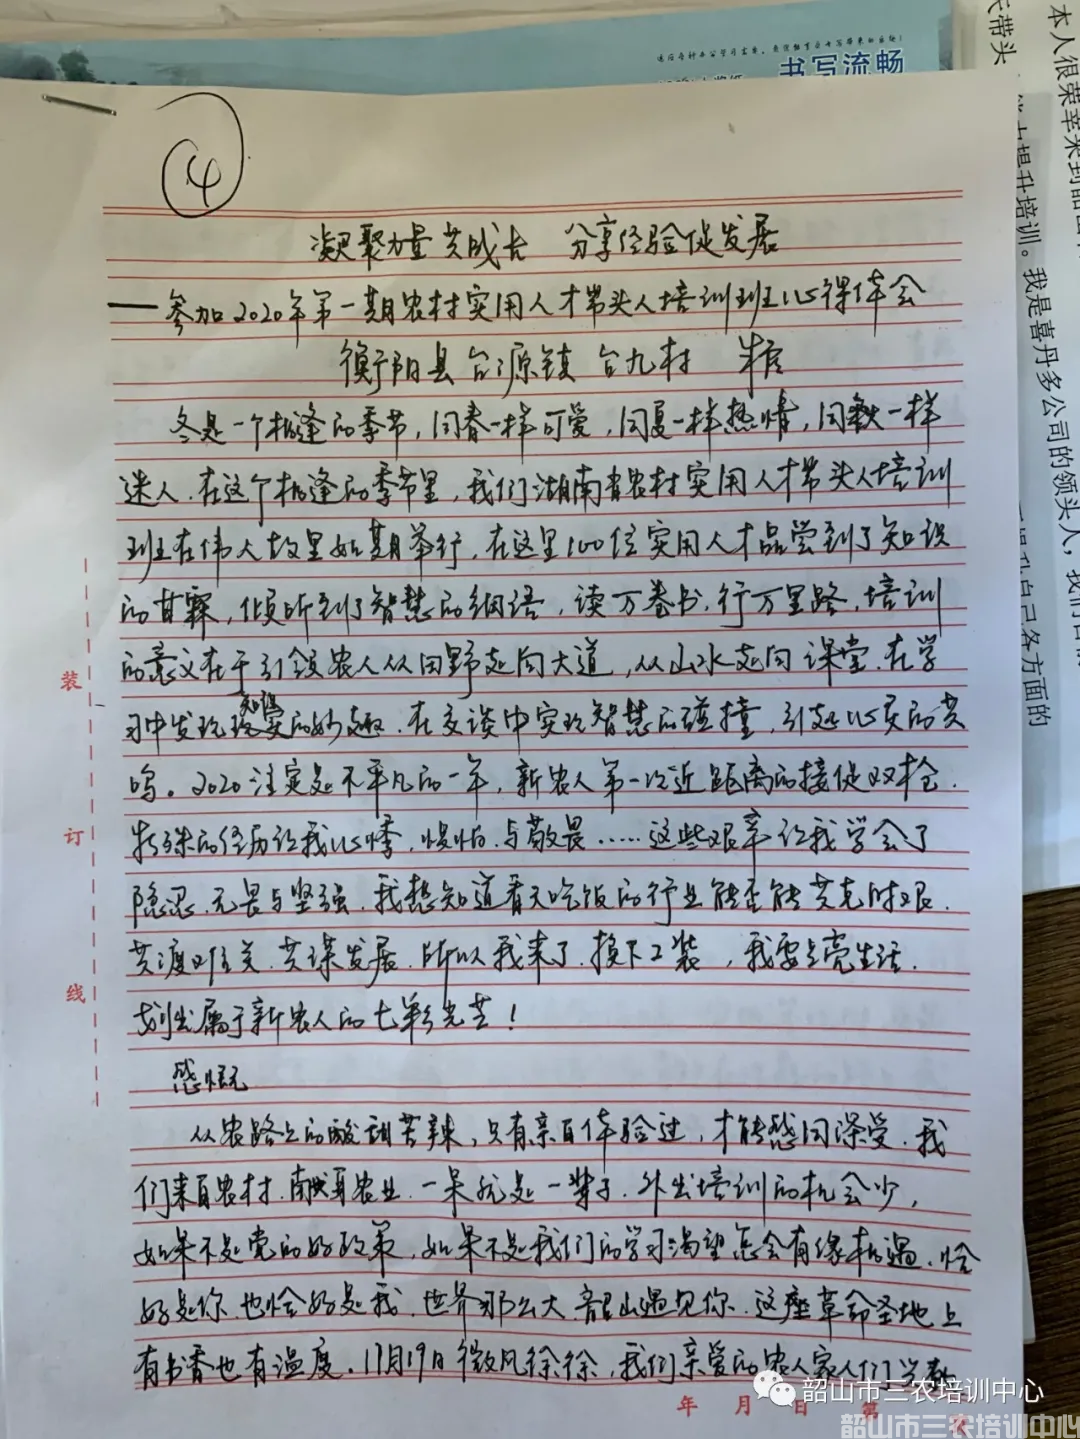 书写流畅
本人很荣幸来到韶山
氏带头
能力提升培训。我是喜丹多公司的领头人，我们
提升自己各方面的
14
凝聚力量共成长 分享经验促发展
——参加2020年第一期农村实用人才带头人培训班心得体会
衡阳县台源镇台九村
冬是一个相逢的季节，同春一样可爱，同夏一样热情，同秋一样
迷人．在这个相逢的季节里，我们湖南省农村实用人才带头人培训
班在伟人故里如期举行，在这里100位实用人才品尝到了知识
的甘霖，倾听到了智慧的细语，读万卷书，行万里路，培训
的意义在于引领农人从田野走向大道，从山水走向课堂．在学
习中发现知识的妙趣．在交谈中实现智慧的碰撞，引起心灵的共
鸣。2020注定是不平凡的一年，新农人第一次近距离的接促双抢．
特殊的经历让我心悸，惧怕．与敬畏……这些艰辛让我学会了
隐忍．无畏与坚强．我想知道看天吃饭的行业能否能共克时艰．
共渡难关．共谋发展．所以我来了．换下工装，我要点亮生活．
划出属于新农人的七彩光芒！
感慨
从农路上的酸甜苦辣，只有亲自体验过，才能感同深受．我
们来自农村．献身农业．一呆就是一辈子．外出培训的机会少，
如果不是党的好政策，如果不是我们的学习渴望怎会有缘相遇．恰
好是你．也恰好是我．世界那么大．韶山遇见你．这座革命圣地上
有书香也有温度．11月19日微风徐徐，我们亲爱的农人家人们
装
订
线
年 月 日 第
韶山市三农培训中心
韶山市三农培训中心